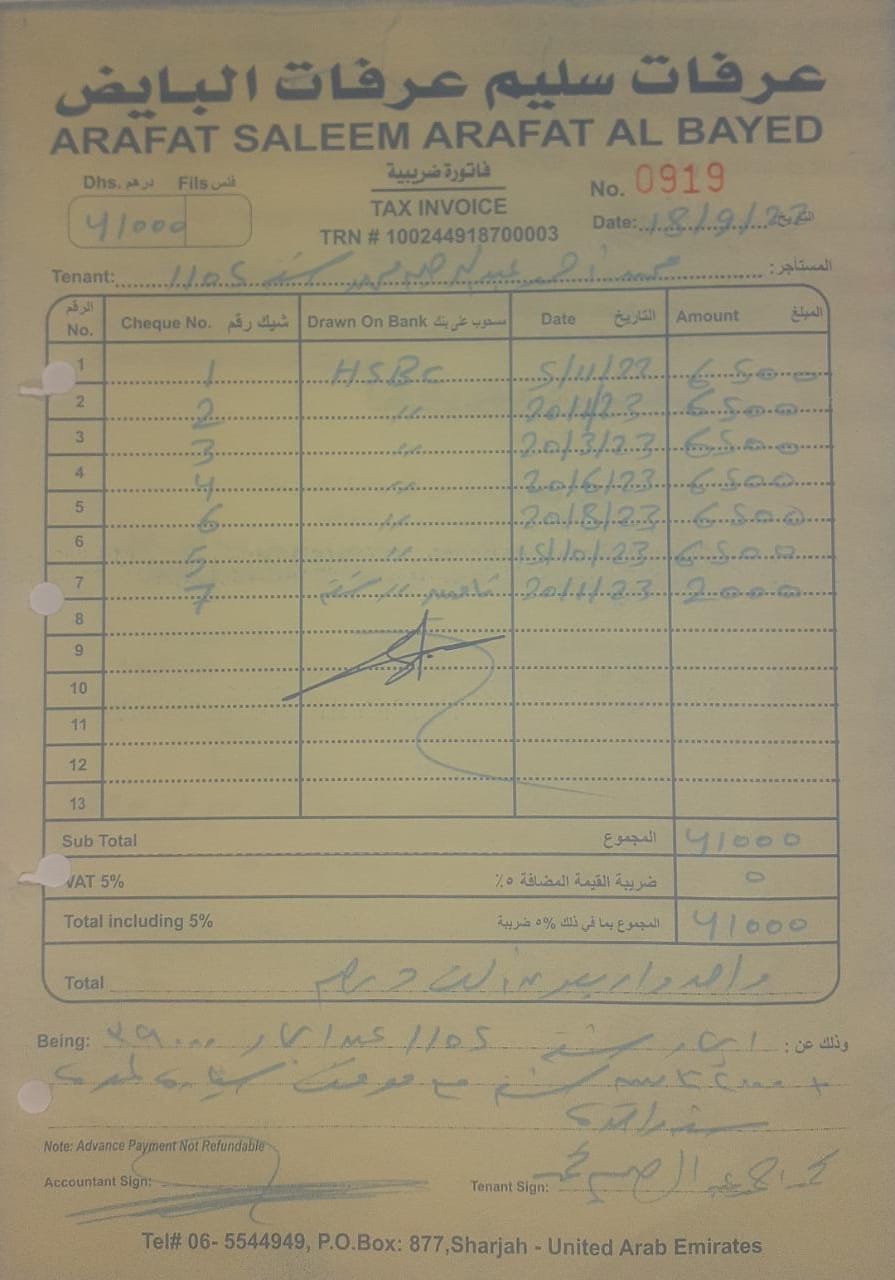 عرفات سليم عرفات البايض
ARAFAT SALEEM ARAFAT AL BAYED
Dhs. درهم Fils فلس
41000
فاتورة ضريبية
TAX INVOICE
TRN # 100244918700003
No. 0919
Date: 18/9/22 التاريخ
Tenant: محمد شقة 1105 المستأجر:
الرقم No. Cheque No. شيك رقم Drawn On Bank مسحوب على بنك Date التاريخ Amount المبلغ
1 1 HSBC 5/11/22 6500
2 2 " 20/1/23 6500
3 3 " 20/3/23 6500
4 4 " 20/6/23 6500
5 6 " 20/8/23 6500
6 5 " 15/10/23 6500
7 7 20/11/23 2000
8
9
10
11
12
13
Sub Total المجموع 41000
VAT 5% ضريبة القيمة المضافة ٥٪ 0
Total including 5% المجموع بما في ذلك ٥% ضريبة 41000
Total واحد وأربعون ألف درهم
Being: ايجار شقة 1105 ٣٩٠٠٠ وذلك عن:
+ ٢٠٠٠ تأمين شقة مع موقف سيارة لمدة
سنة واحدة
Note: Advance Payment Not Refundable
Accountant Sign:
Tenant Sign:
Tel# 06- 5544949, P.O.Box: 877,Sharjah - United Arab Emirates